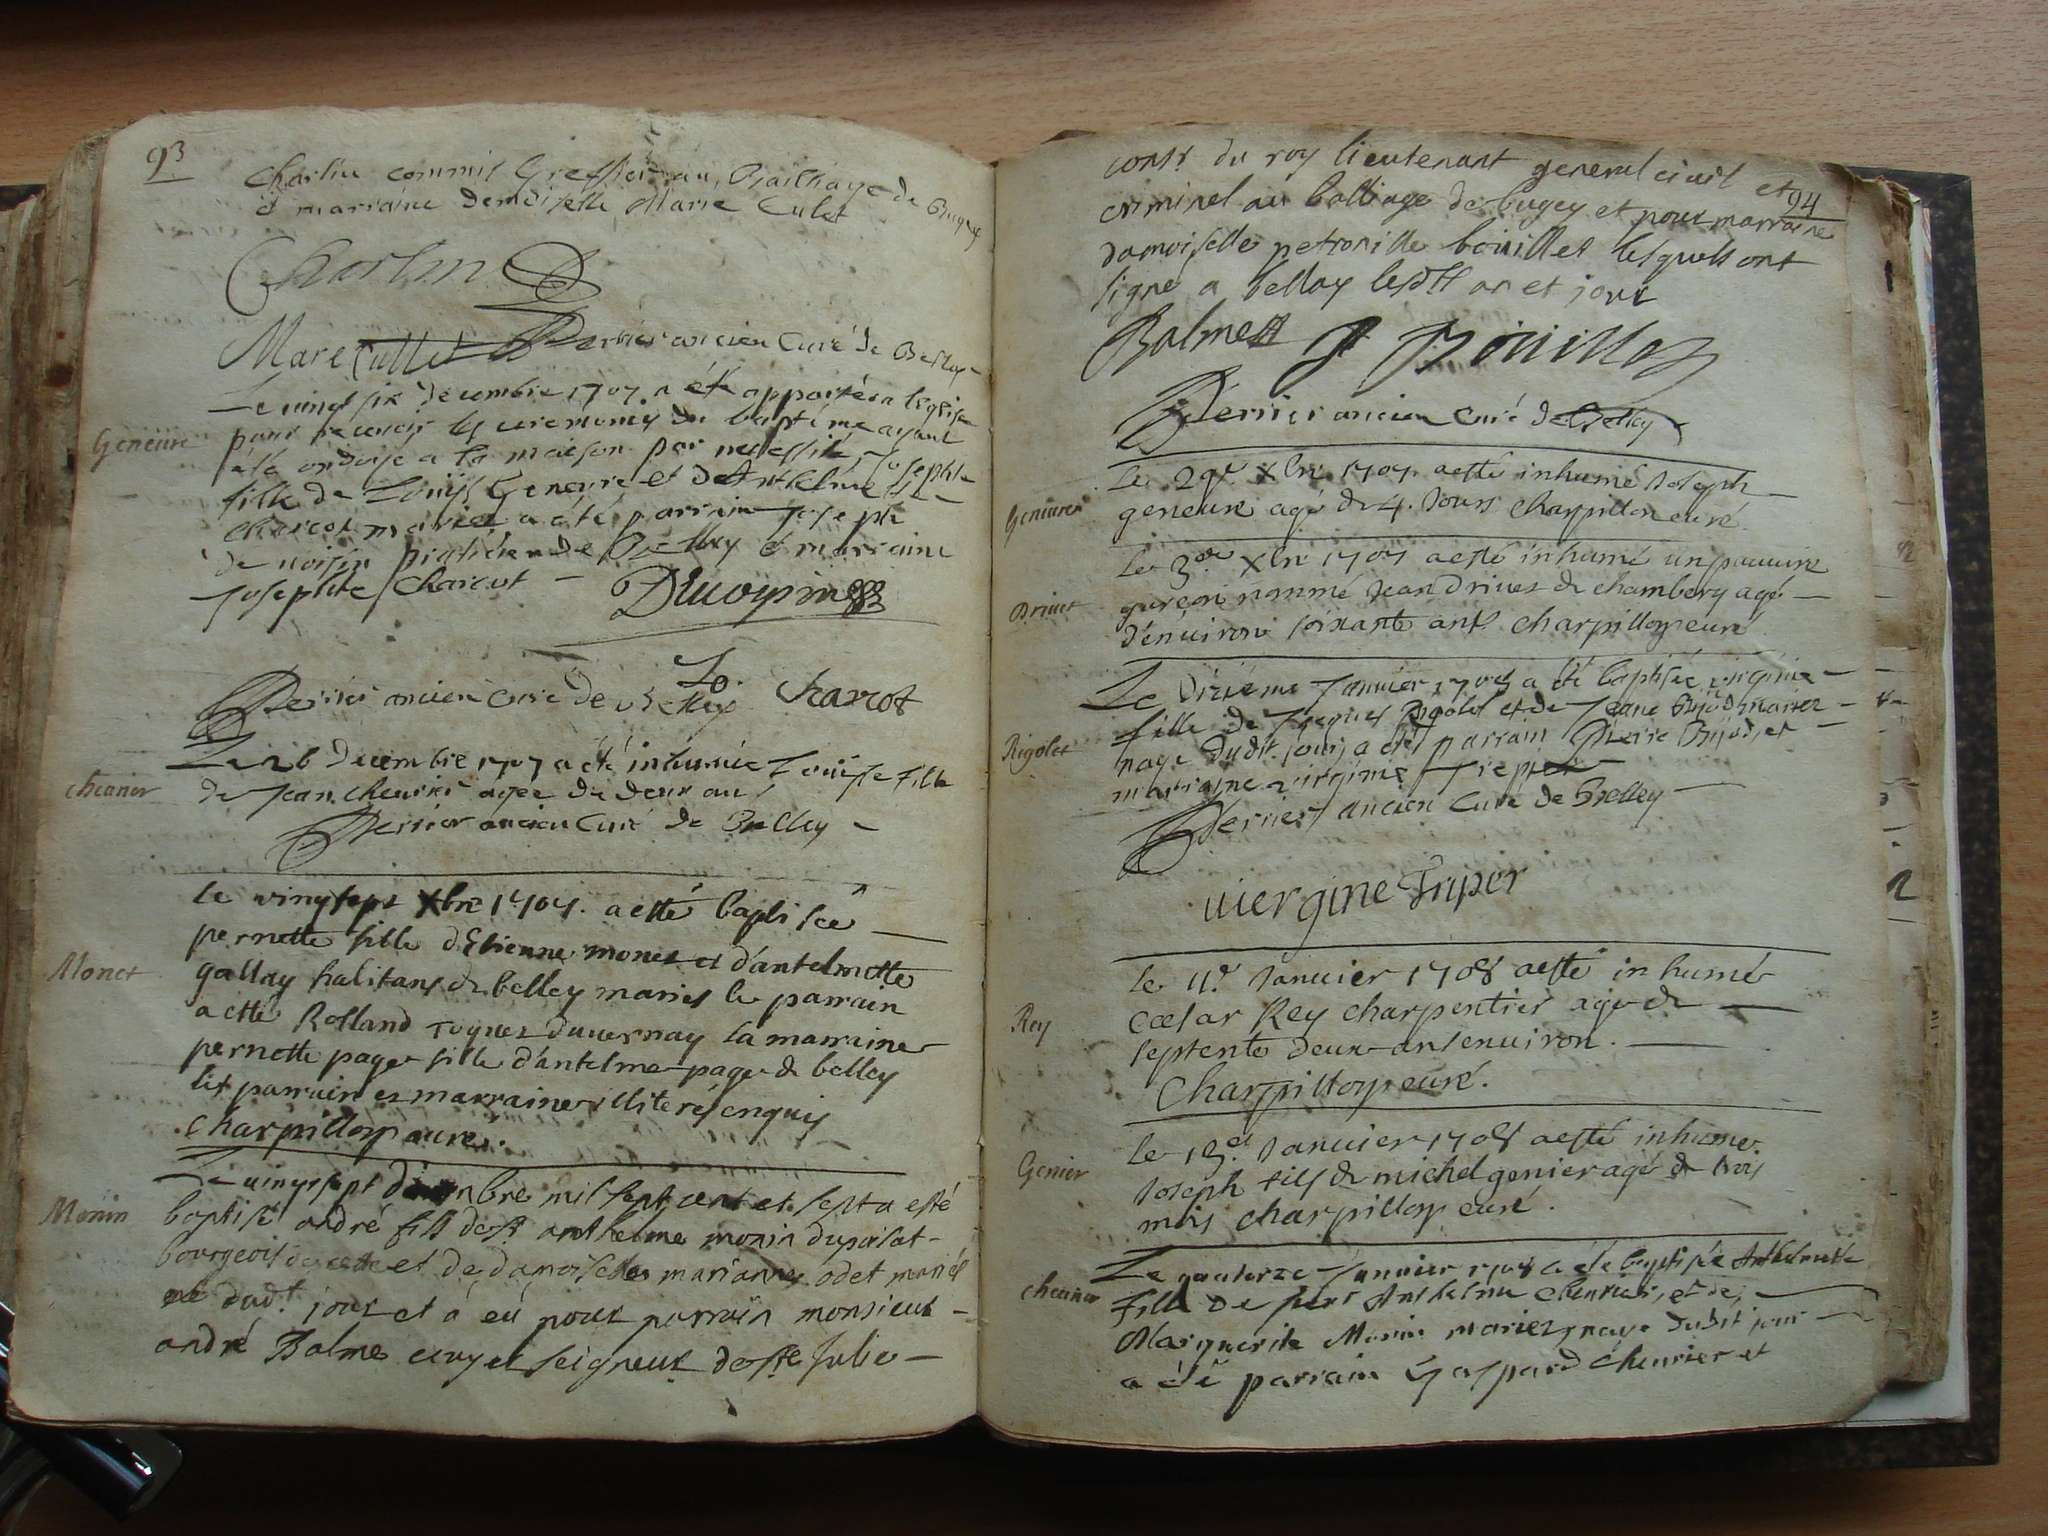 93
Charlin commis Greffier au Bailliage de Bugey
& marraine demoiselle Marie Culet
Charlin
Marie Cullet Perrier ancien Curé de Belley
Le vingt six decembre 1707 a été apportée a l'eglise
pour recevoir les ceremonies du baptême ayant
été ondoié a la maison par necessité, Josephte
fille de Louis Geneure et de Anthelme
Charcot mariez a été parrain Joseph
de praticien de Belley & marraine
Josephte Charcot
Geneure
Jo. Charcot
Perrier ancien Curé de Belley
Le 26 Decembre 1707 a été inhumée Louise fille
de Jean Cheurier agée de deux ans
Cheurier
Perrier ancien Curé de Belley
le vingt sept Xbre 1707. a esté baptisée
pernette fille d'Etienne monet et d'antelmette
gallay habitans de belley mariés le parrain
Monet
a esté Rolland duvernay la marraine
pernette page fille d'antelme page de belley
les parrain et marraine illiterés enquis
Charpillon curé.
Le vingt sept decembre mil sept cent et sept a esté
baptisé andré fils de Sr anthelme monin
Monin
bourgeois de et de damoiselle marianne odet mariés
né dudt. jour et a eu pour parrain monsieur
andré Balme ecuyer seigneur de Ste Julie
94
consr. du roy lieutenant general civil et
criminel au balliage de bugey et pour marraine
damoiselle petronille boüillet lesquels ont
signé a belley lesdts an et jour
Balme P Boüillet
Perrier ancien Curé de Belley
le 29e Xbre 1707. a esté inhumé Joseph
geneure agé de 4. Jours Charpillon curé.
Geniure
le 30e Xbre 1707 a esté inhumé un pauvre
garçon nommé Jean Drivet de chambery agé
Drivet
d'environ soixante ans. Charpillon curé
Le Janvier 1708 a été baptisée virginie
fille de Jacques Rigolet et de Jeane mariez
Rigolet
naye dudit jour, a été parrain Pierre et
marraine virginie
Perrier ancien Curé de Belley
viergine Tripier
le 11e. Janvier 1708 a esté inhumé
Cæsar Rey charpentier agé de
Rey
septente deux ans environ.
Charpillon curé.
le 13e. Janvier 1708 a esté inhumé
Joseph fils de michel genier agé de trois
Genier
mois Charpillon curé.
Le quatorze Janvier 1708 a été baptisée Anthelmette
fille de Anthelme Cheurier, et de,
Cheurier
Marguerite Monin mariez, naye dudit jour
a été parrain Gaspard Cheurier et